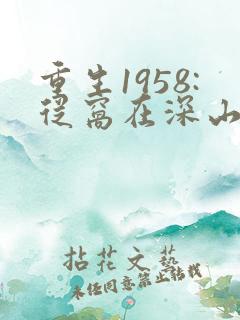 重生1958:
从窝在深山
拈花文艺
未经同意禁止转载